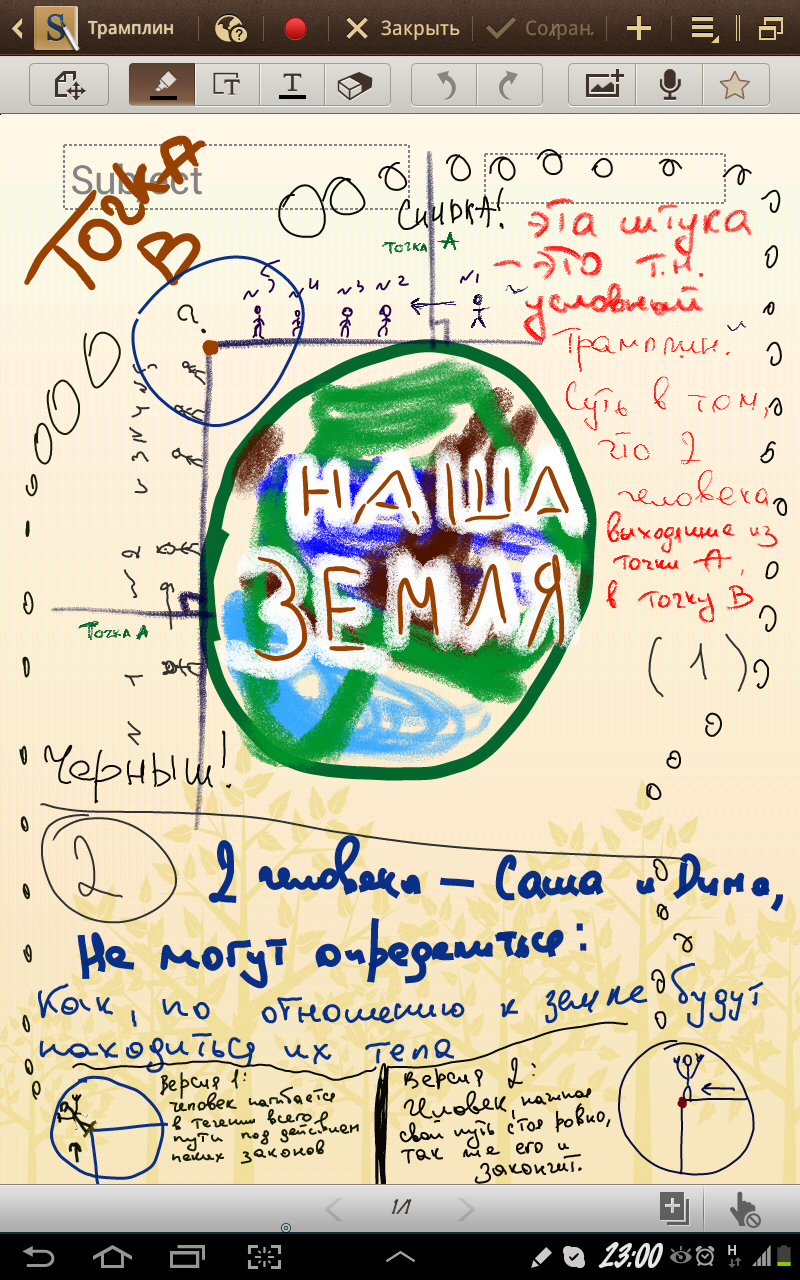 Трамплин
Закрыть
Сохран.
Subject
Точка
В
СИНЬКА!
Точка А
N5 N4 N3 N2 N1
?
Эта штука
- это т.н.
условный
Трамплин.
Суть в том,
что 2
человека
выходящие из
точки А,
в точку В
(1)
НАША
ЗЕМЛЯ
N5
N4
N3
N2
Точка А
N1
Черныш!
2
2 человека — Саша и Дима,
Не могут определиться:
Как, по отношению к земле будут
находиться их тела
Версия 1:
человек нагибается
в течении всего
пути под действием
неких законов
Версия 2:
Человек, начиная
свой путь стоя ровно,
так же его и
закончит.
1/1
23:00
H